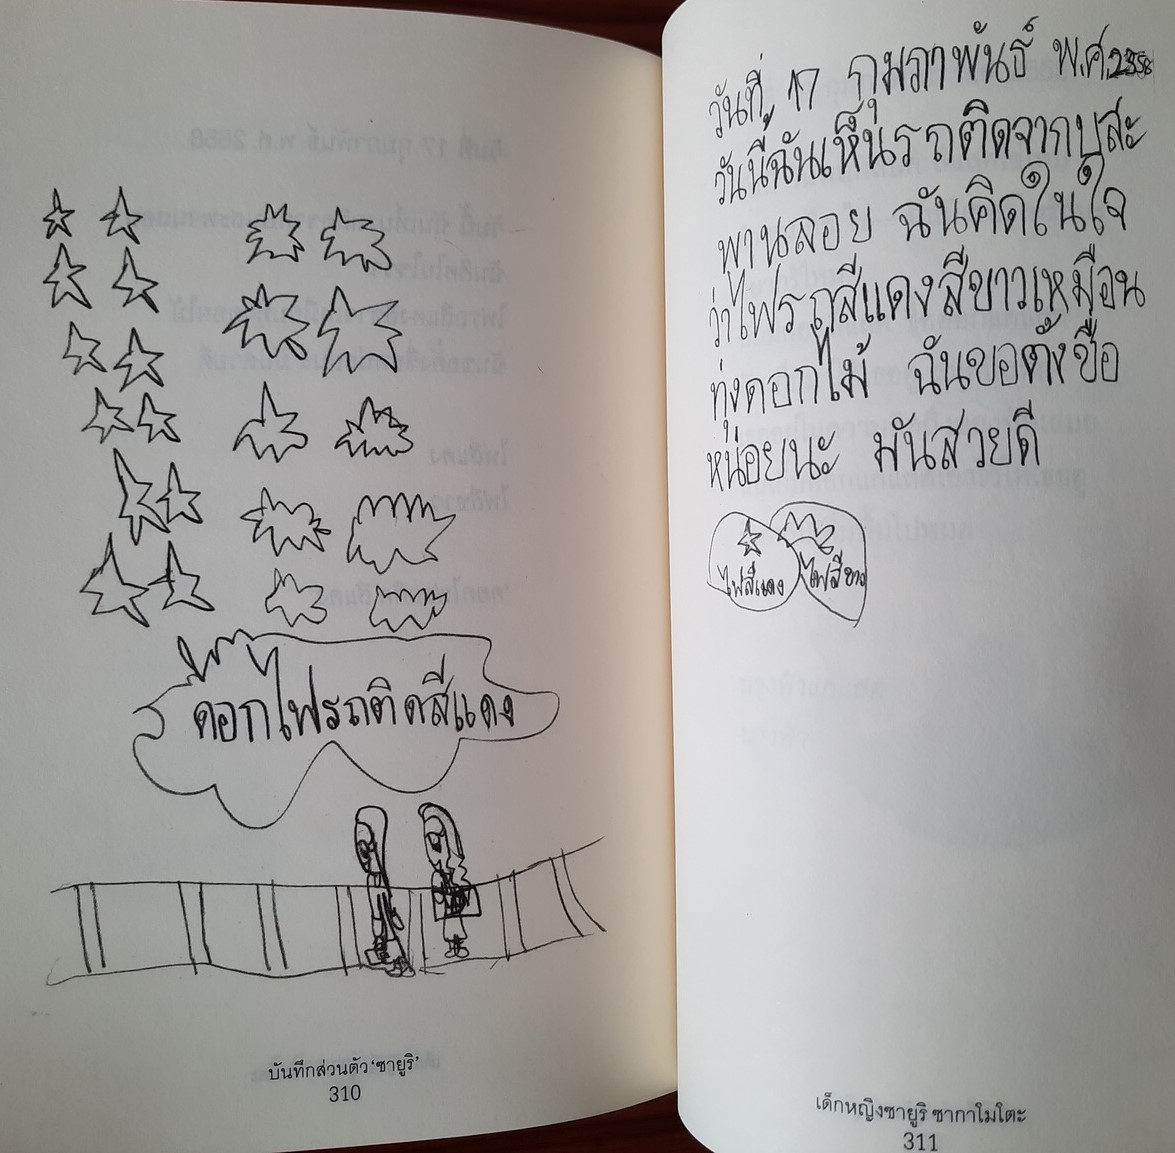 ดอกไฟรถติดสีแดง
บันทึกส่วนตัว ‘ซายูริ’
310
วันที่ 17 กุมภาพันธ์ พ.ศ.2558
วันนี้ฉันเห็นรถติดจากบสะ
พานลอย ฉันคิดในใจ
ว่าไฟรถสีแดงสีขาวเหมือน
ทุ่งดอกไม้ ฉันขอตั้งชื่อ
หน่อยนะ มันสวยดี
ไฟสีแดง ไฟสีขาว
เด็กหญิงซายูริ ซากาโมโตะ
311